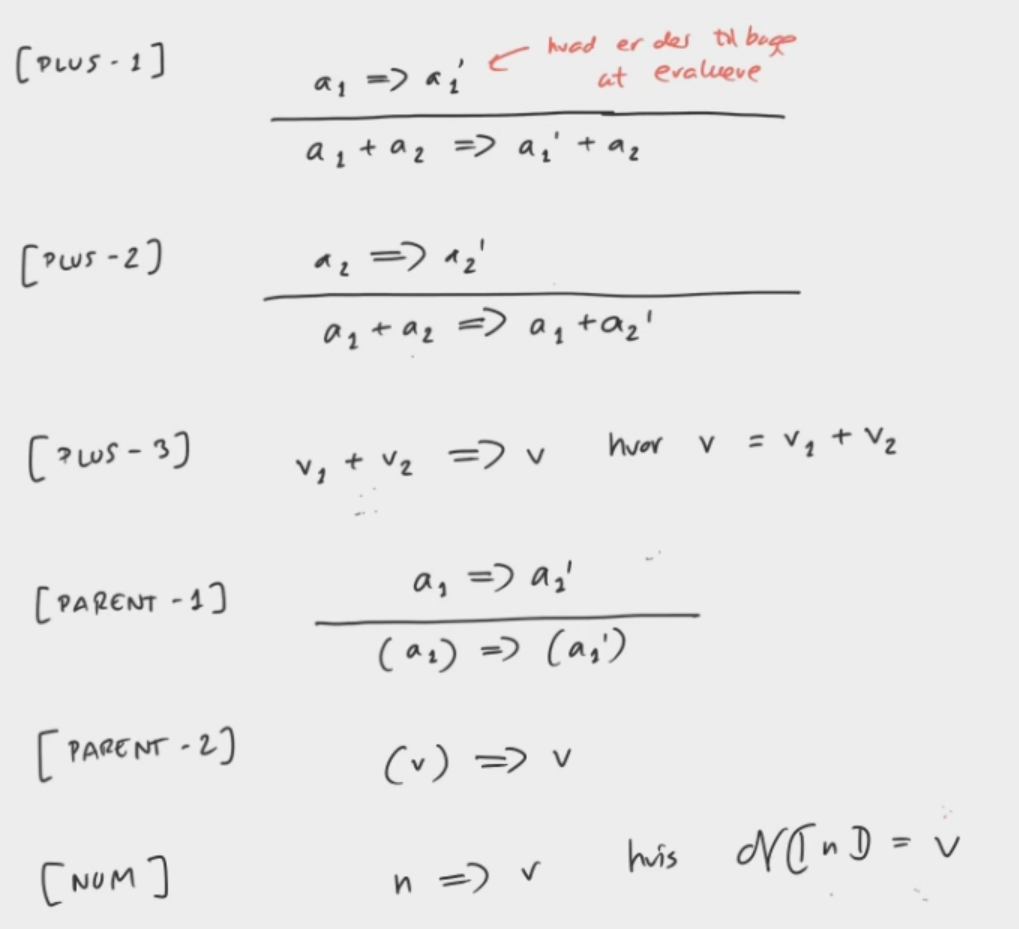 [PLUS-1]
a₁ => a₁' hvad er des til bage
at evaluere
a₁ + a₂ => a₁' + a₂
[PLUS-2]
a₂ => a₂'
a₁ + a₂ => a₁ + a₂'
[PLUS-3] v₁ + v₂ => v hvor v = v₁ + v₂
[PARENT-1]
a₁ => a₁'
(a₁) => (a₁')
[PARENT-2] (v) => v
[NUM] n => v hvis 𝒩⟦n⟧ = v